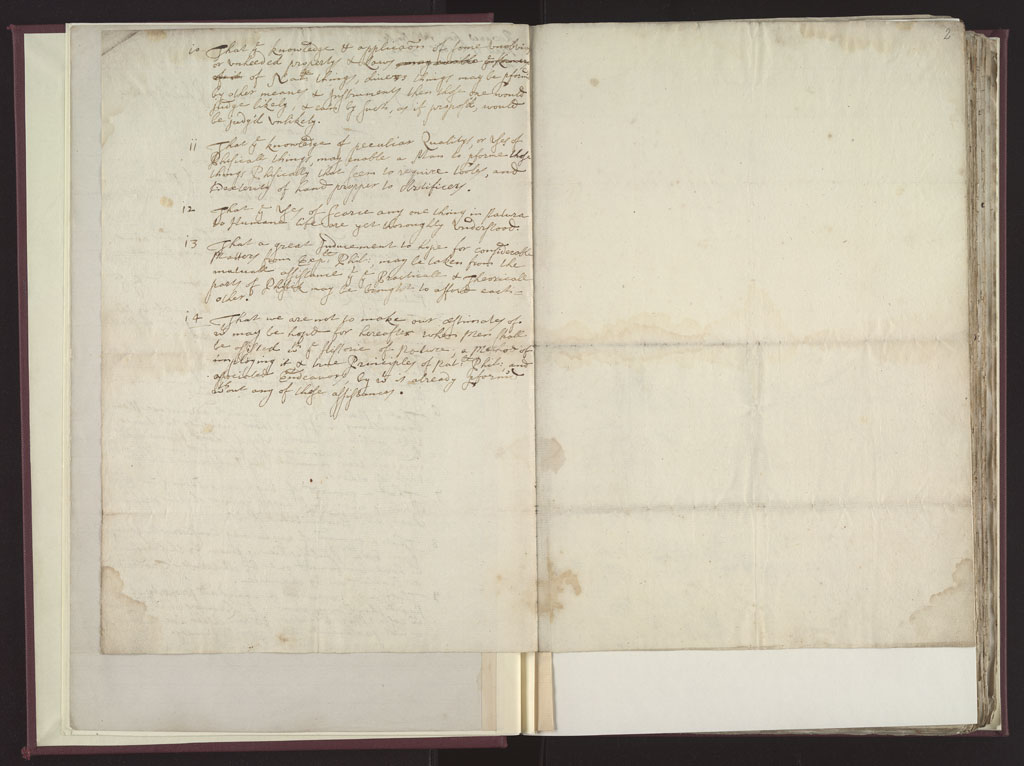 2
10 That ye knowledge & application of some
or unheeded property & Laws
of Natll things, divers things may be pformd
by other means & Instruments then those one would
judge likely, & even by such, as if propos'd, would
be judg'd unlikely.
11 That ye knowledge of peculiar Qualitys, or Uses of
Phisicall things, may enable a Man to pforme those
things Phisically, that seem to require tooles, and
Dexterity of hand propper to Artificers.
12 That ye Uses of Scarce any one thing in Nature
to Humane life are yet thoroughly Understood.
13 That a great Inducement to hope for considerable
Matters from Expll Phil: may be taken from the
mutuall assistance yt ye Practicall & Theoricall
parts of Physick may be brought to afford each=
other.
14 That we are not to make our æstimates of
wt may be hop'd for hereafter when Men shall
be assisted wt ye Historie of Nature, a Method of
imploying it & true Principles of Natll Phil: and
associated Endeavors, by wt is already pformd
wthout any of these assistances.